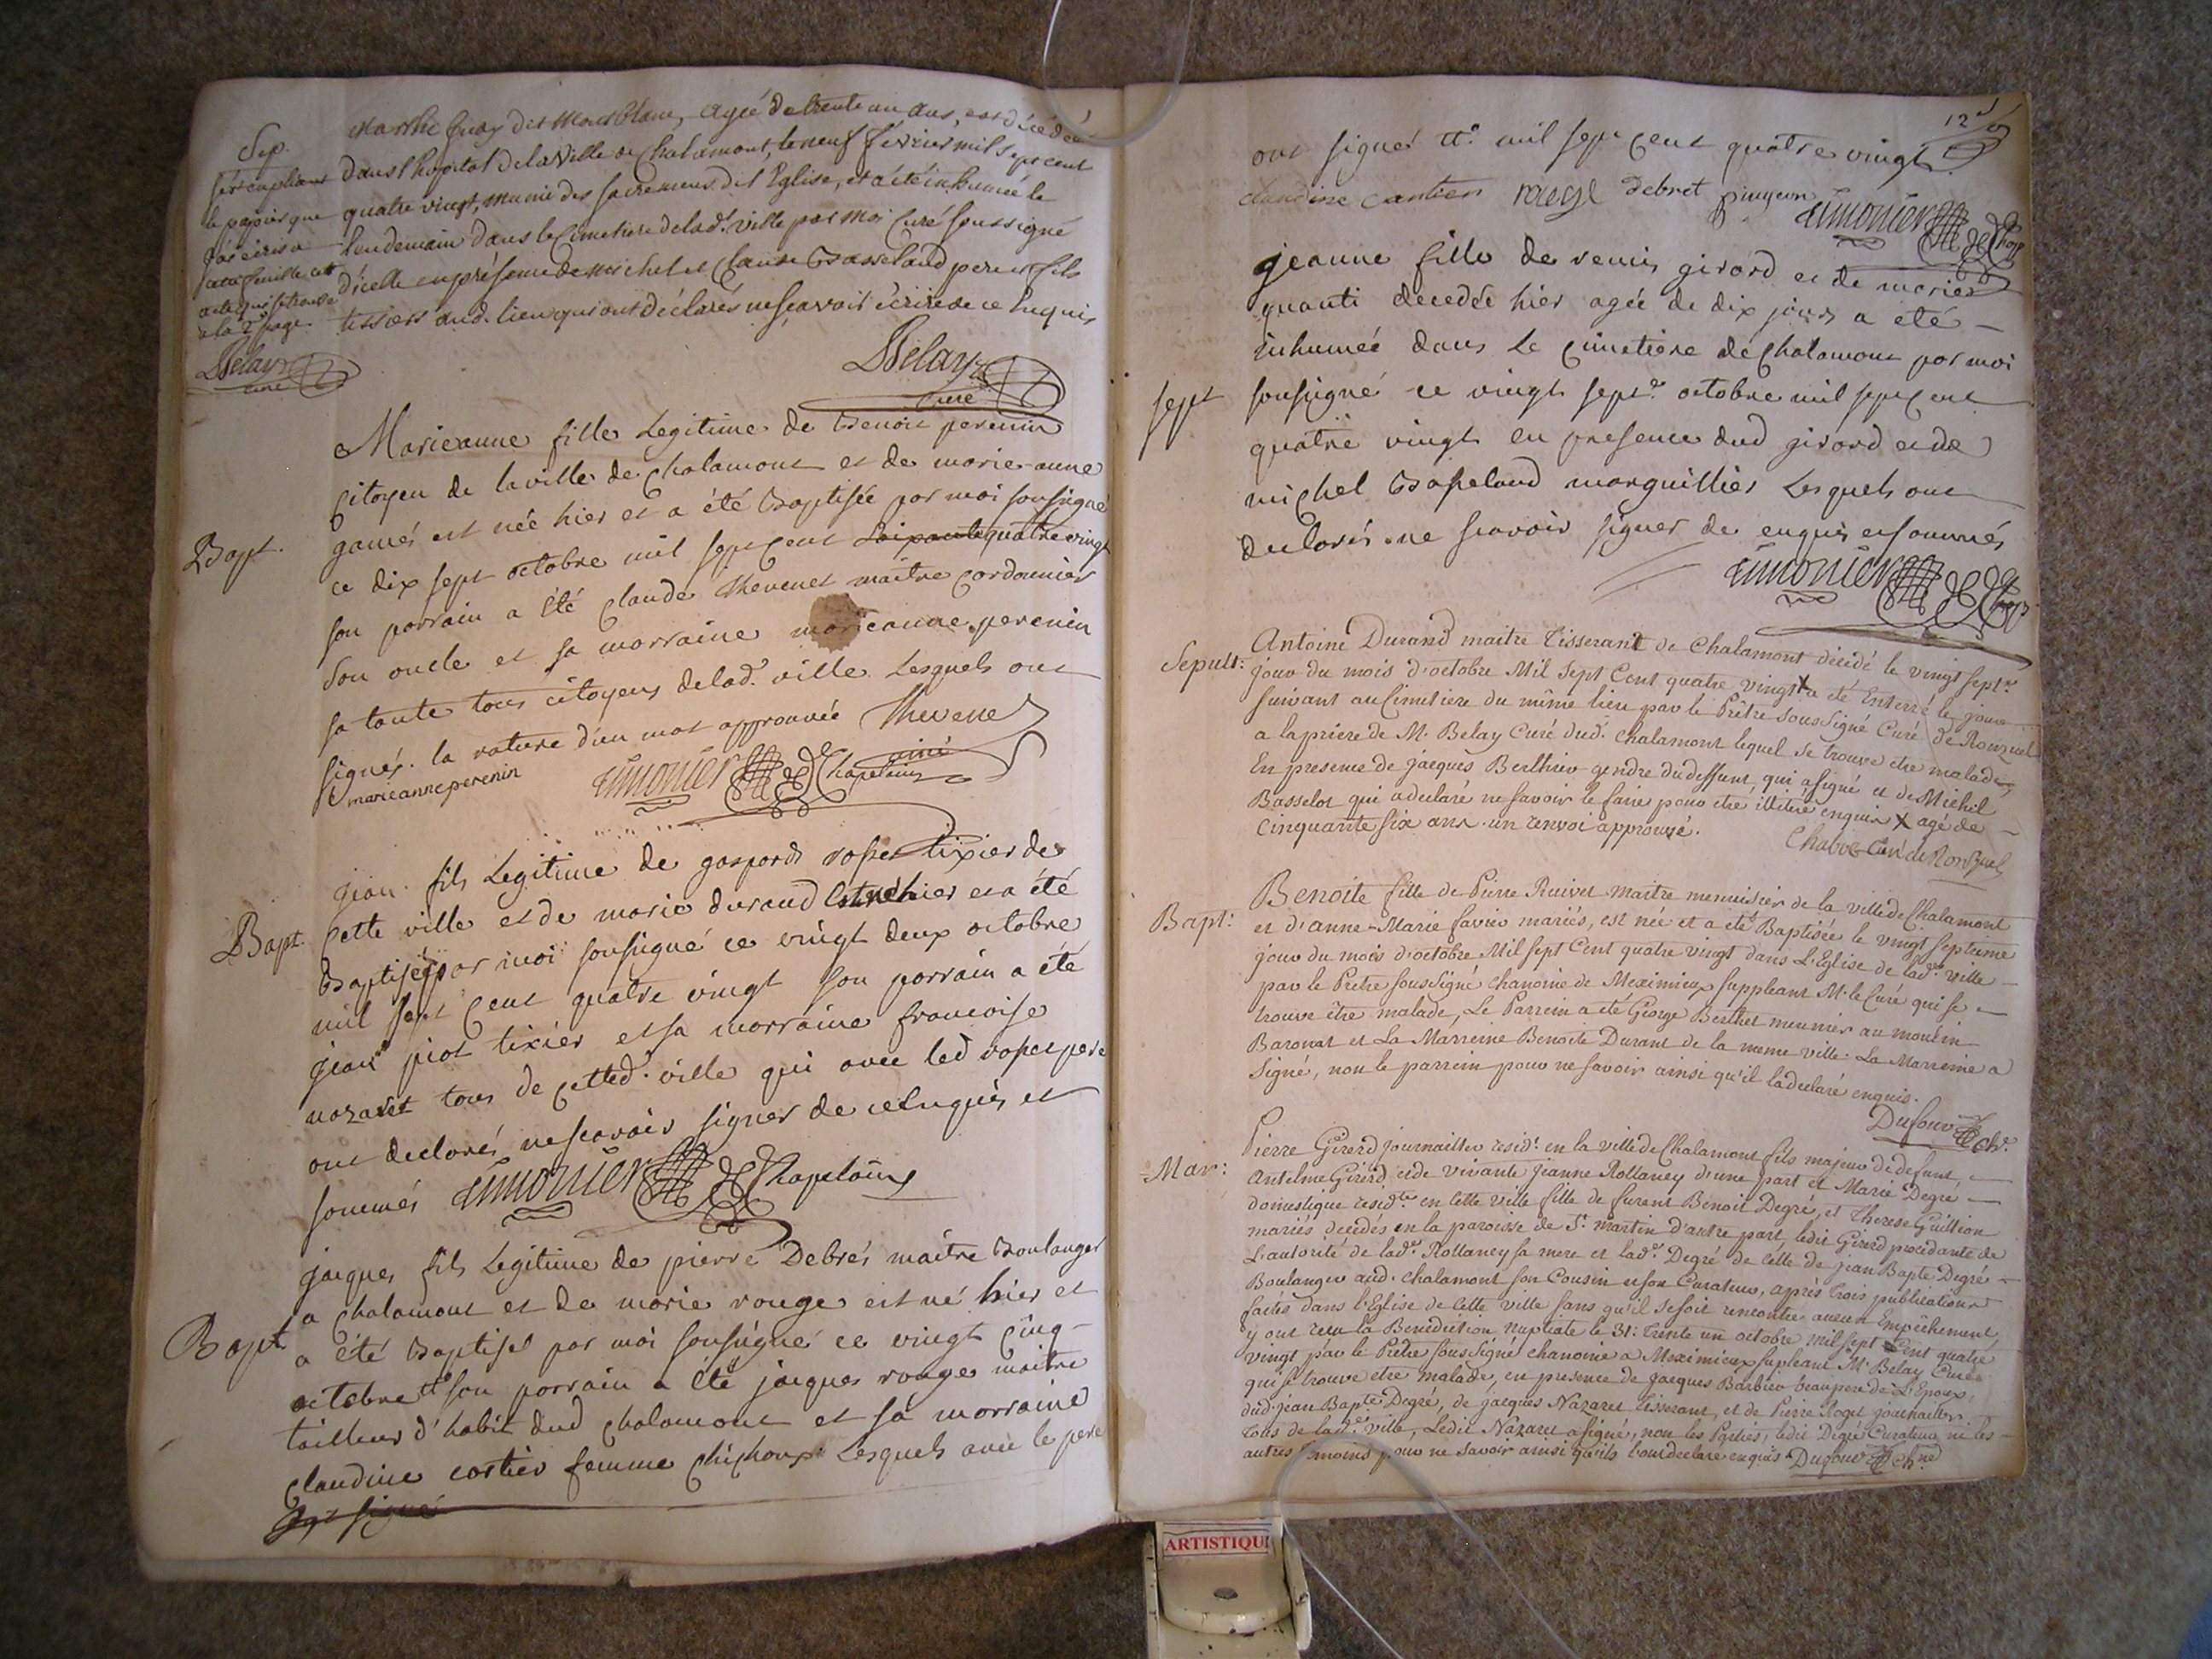 Sep.
Marthe Guay dit Montblanc, agée de trente un ans, est décédée
dans l'hopital de la Ville de Chalamont, le neuf fevrier mil sept cent
quatre vingt, munie des sacremens de l'Eglise, et a été inhumée le
lendemain dans le Cimetiere de lad. ville par moi Curé soussigné
d'icelle en présence de Michel et Claude Basseland pere et fils
tessiers aud. lieu qui ont déclarés ne scavoir écrire de ce Enquis
c'est en pliant
le papier que
j'ai écris a
cette feuille cet
acte qui se trouve
a la 2e page.
Belay
curé
Belay
Curé
Bapt.
Marieanne fille Legitime de Benoit perenin
Citoyen de la ville de Chalamont et de marie-anne
gamés est née hier et a été Baptisée par moi sousigné
ce dix sept octobre mil sept cent soixante quatre vingt
son parrain a été Claude thevenet maitre Cordonnier
son oncle et sa marraine marieanne perenin
sa tante tous citoyens de lad. ville Lesquels ont
signés. la rature d'un mot approuvée Thevenet
ainé
marieanne perenin
timonier Chapelain
Bapt.
jean fils Legitime de gaspard tixier de
cette ville et de marie durand est né hier et a été
Baptisé par moi sousigné ce vingt deux octobre
mil sept cent quatre vingt son parrain a été
jean piot tixier et sa marraine francoise
nazaret tous de cetted. ville qui avec led pere
ont declarés ne scavoir signer de ce Enquis et
sommés timonier Chapelain
Bapt
jaques fils Legitime de pierre Debrés maitre Boulanger
a Chalamont et de marie rouge est né hier et
a été Baptisé par moi sousigné ce vingt cinq
octobre son parrain a été jacques rouge maitre
tailleur d'habit dud Chalamont et sa marraine
Claudine cortier femme Lesquels avec le pere
ont signé
12
ont signés mil sept cent quatre vingt
claudine debret pingeon
timonier Chap
Sept
jeanne fille de girard et de marie
decedée hier agée de dix jours a été
inhumée dans Le Cimetiere de Chalamont par moi
sousigné ce vingt sept.e octobre mil sept cent
quatre vingt en presence dud girard et de
michel Baseland marguillier Lesquels ont
declarés ne scavoir signer de enquis et sommés
timonier Chap
Sepult:
Antoine Durand maitre Tisserant de Chalamont décédé le vingt sept.e
jour du mois d'octobre Mil Sept Cent quatre vingt X a été Enterré le jour
suivant au Cimetiere du même lieu par le Prêtre Soussigné Curé de Ronzuel
a la priere de M. Belay Curé dud. Chalamont lequel se trouve etre malade
En presence de jacques Berthier gendre du deffunt, qui a signé et de Michel
Basselot qui a declaré ne savoir le faire pour etre illiteré enquis X agé de
cinquante six ans. un renvoi approuvé.
Chabot Curé de Ronzuel
Bapt:
Benoite fille de Pierre Ruivet maitre menuisier de la ville de Chalamont
et d'anne-Marie favier mariés, est née et a eté Baptisée le vingt septieme
jour du mois d'octobre Mil sept Cent quatre vingt dans L'Eglise de lad.e ville
par le Prêtre sousSigné chanoine de Meximieux suppleant M. le Curé qui se
trouve être malade, Le Parrein a eté George Berthet meunier au moulin
Baronat et La Marreine Benoite Durant de la meme ville. La Marreine a
signé, non le parrein pour ne savoir ainsi qu'il la declaré enquis.
Dufour ch.e
Mar:
Pierre Girerd journaillier resid.t en la ville de Chalamont fils majeur de defunt
Antelme Girerd et de vivante jeanne Rollaney d'une part et Marie Degré
domestique resid.te en cette ville fille de furent Benoit Degré, et Therese Guillion
mariés decedés en la paroisse de S.t martin d'autre part, ledit Girerd procedant de
L'autorité de lad.e Rollaney sa mere et lad.e Degré de celle de jean Bapte Degré
Boulanger aud. Chalamont son Cousin et son Curateur, après trois publications
faites dans l'Eglise de cette ville sans qu'il se soit rencontré aucun Empêchement,
y ont recu la Benediction Nuptiale le 31: trente un octobre mil sept Cent quatre
vingt par le Prêtre sousSigné chanoine a Meximieux supleant M.r Belay Curé
qui se trouve etre malade, en presence de jacques Barbier beaupere de L'Epoux,
dud. jean Bapte Degré, de jacques Nazaret tisserant, et de Pierre Roget journaillier
tous de lad.e ville, Ledit Nazaret a signé, non les Parties, ledit Degré Curateur, ni les
autres temoins pour ne savoir ainsi qu'ils l'ont declaré enquis. Dufour ch.ne
ARTISTIQU